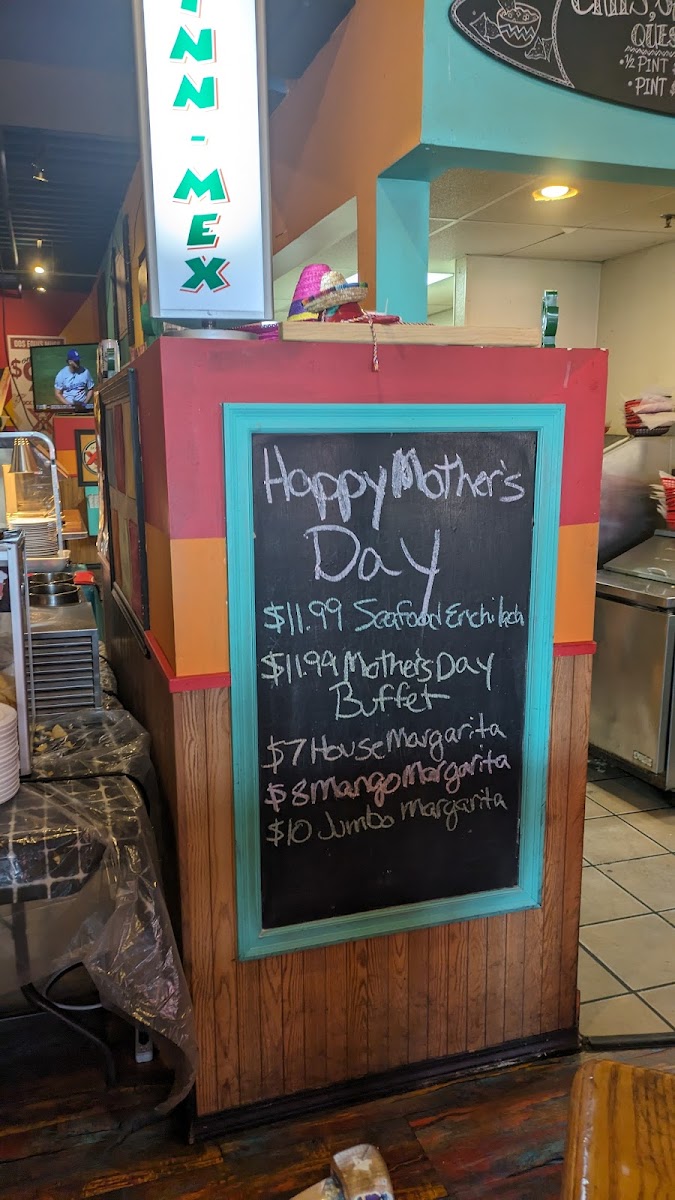 NN-MEX
QUES
• ½ PINT
• PINT
Happy Mother's
Day
$11.99 Seafood Enchilada
$11.99 Mother's Day
Buffet
$7 House Margarita
$8 Mango Margarita
$10 Jumbo Margarita